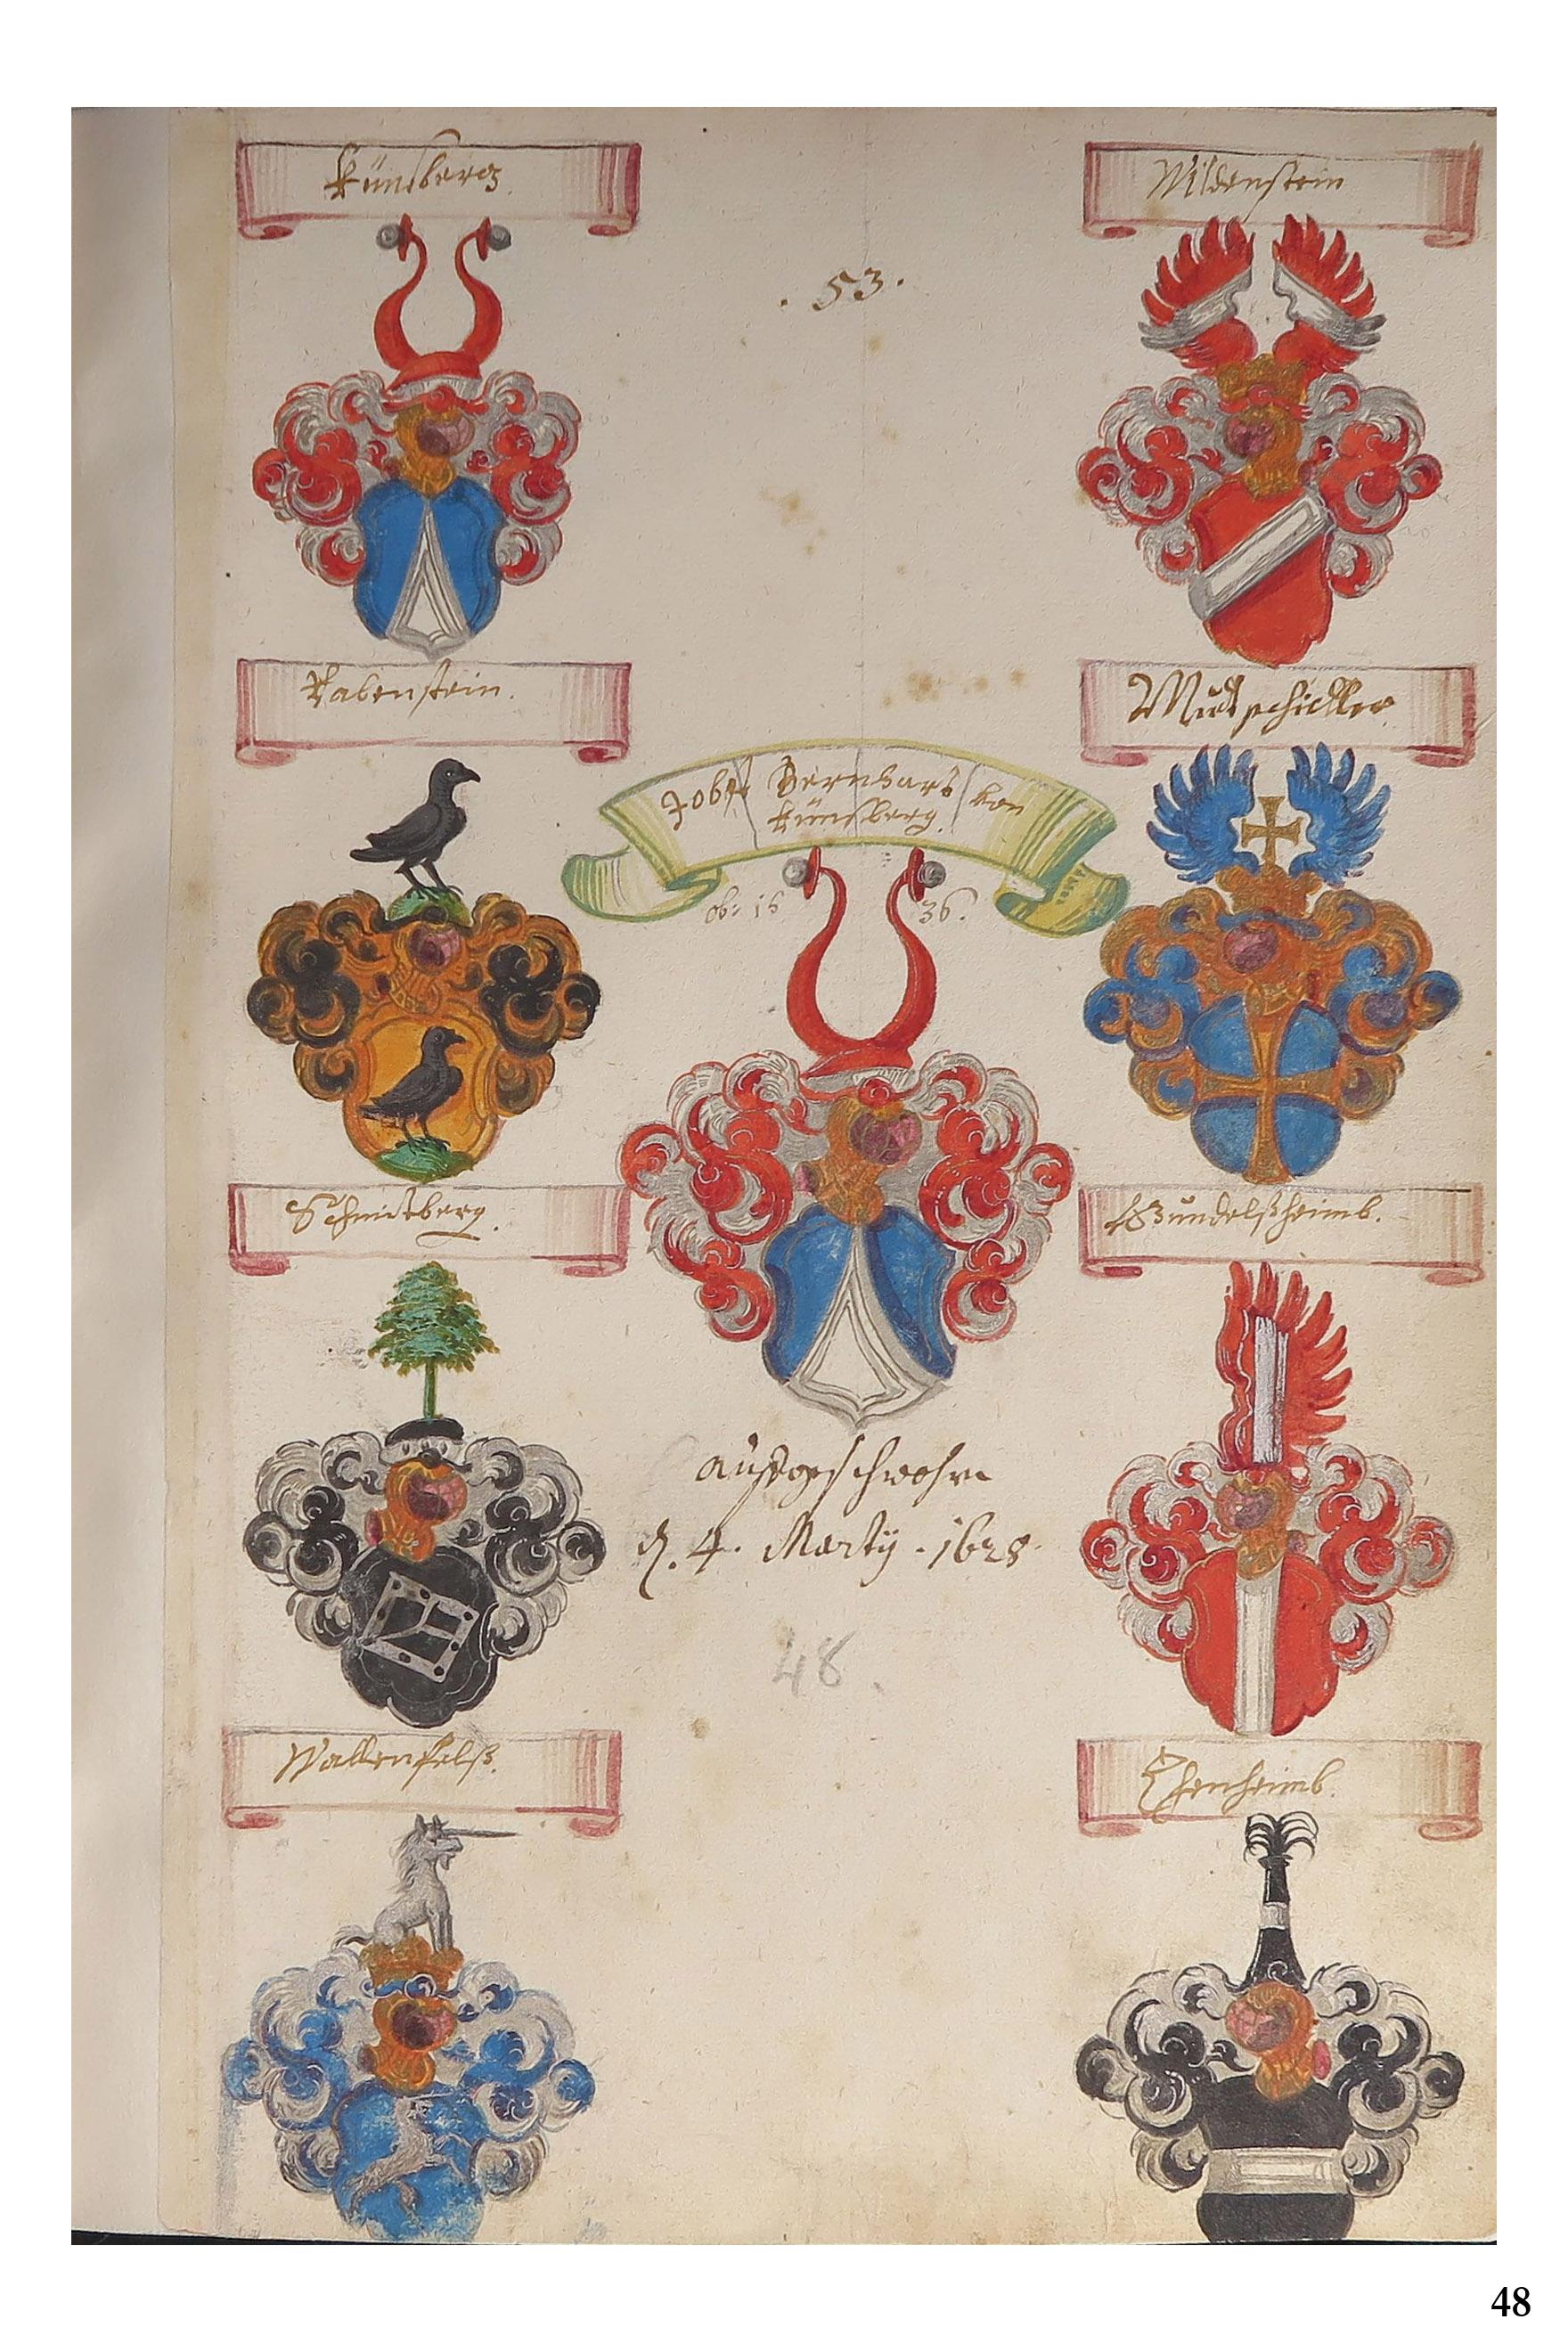 Künsberg.
Wildenstein
. 53 .
Rabenstein.
Mutschidler
Jobst Bernhard von
Künsberg.
ob: 16 36.
Schirntberg.
Gundelßheimb.
auffgeschwohrn
d. 4. Marty. 1628.
48.
Wallenfelß.
Ehenheimb.
48